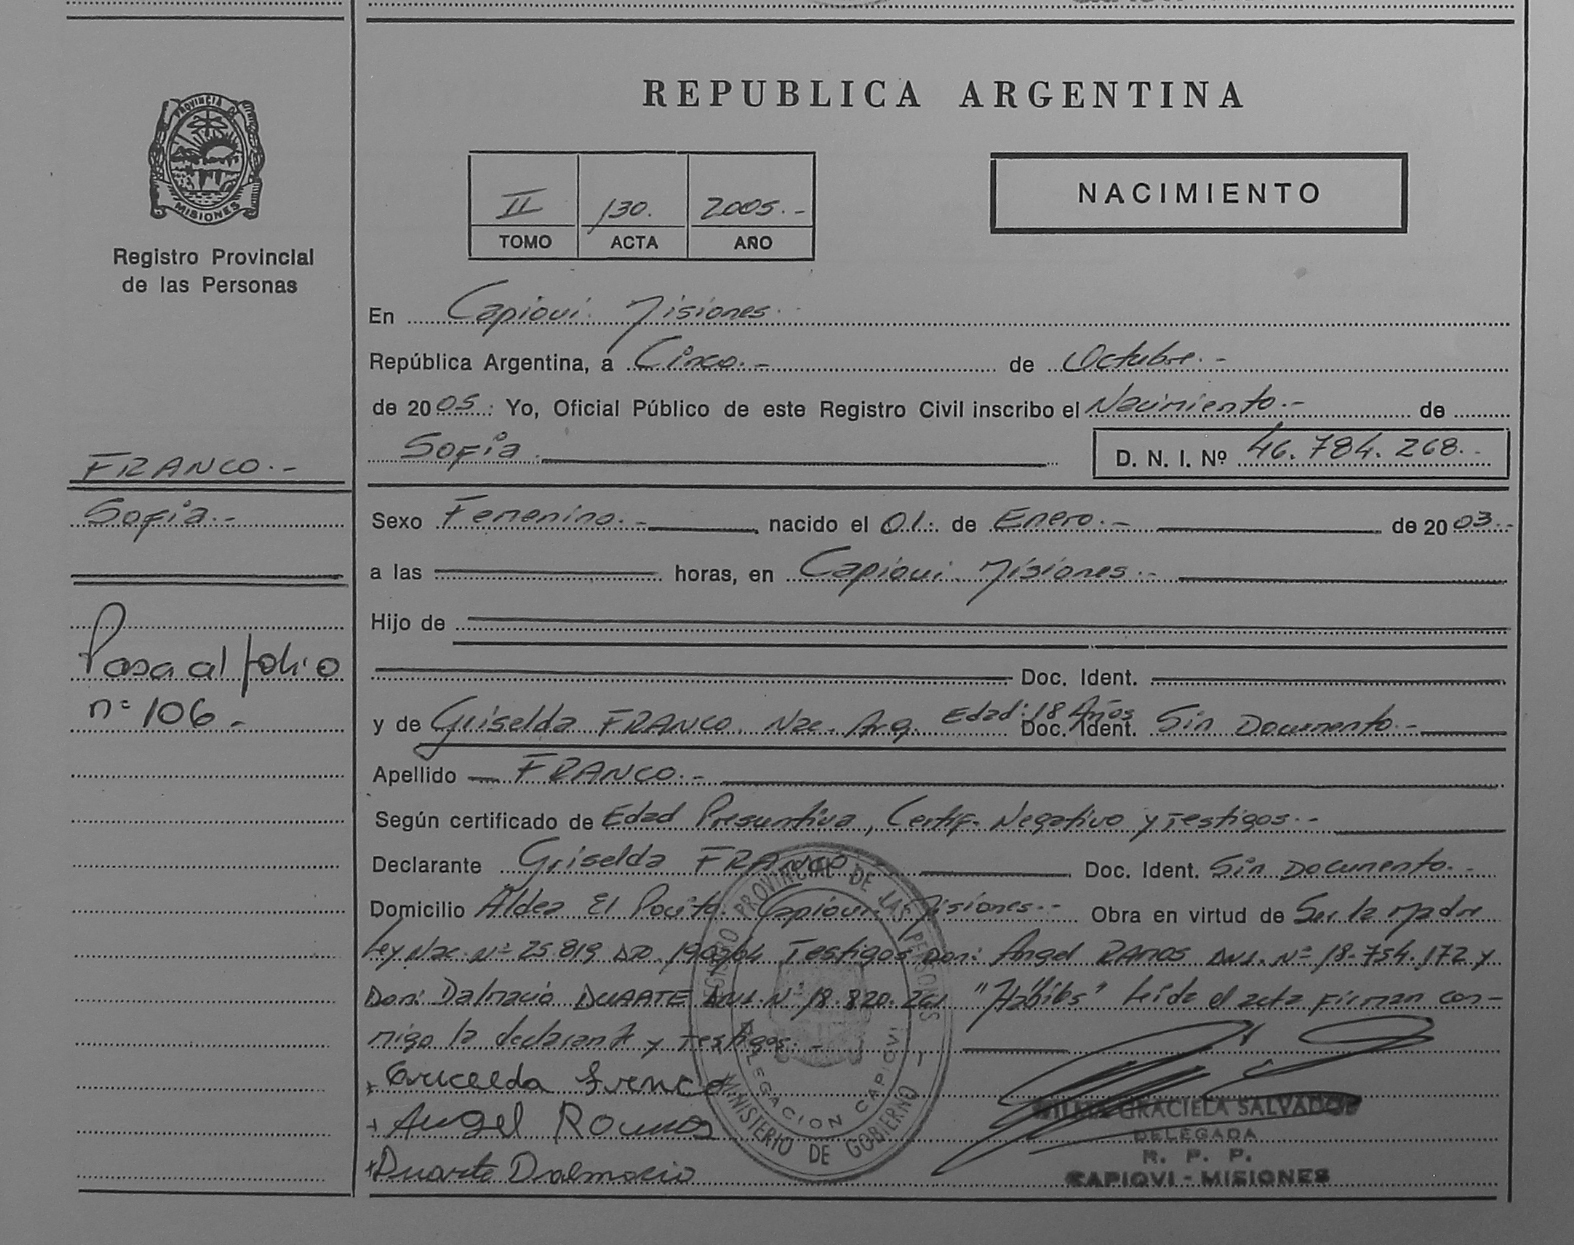 REPUBLICA ARGENTINA
PROVINCIA DE
MISIONES
Registro Provincial
de las Personas
II 130. 2005.-
TOMO ACTA AÑO
NACIMIENTO
En Capiovi. Misiones.
República Argentina, a Cinco.- de Octubre.-
de 2005. Yo, Oficial Público de este Registro Civil inscribo el Nacimiento.- de
Sofia D. N. I. Nº 46.784.268.-
FRANCO.-
Sofia.-
Pasa al folio
nº 106.-
Sexo Femenino.- nacido el 01. de Enero.- de 2003.-
a las horas, en Capiovi. Misiones.-
Hijo de
Doc. Ident.
y de Griselda FRANCO. Nac. Arg. Edad: 18 Años Doc. Ident. Sin Documento.-
Apellido FRANCO.-
Según certificado de Edad Presuntiva, Certif. Negativo y Testigos.-
Declarante Griselda FRANCO Doc. Ident. Sin Documento.-
Domicilio Aldea El Pocito. Capiovi. Misiones.- Obra en virtud de Ser la madre
Ley Nac. Nº 25.819 190/04 Testigos Don: Angel RAMOS DNI. Nº 18.754.172 y
Don: Dalmacio DUARTE DNI. Nº 18.820.261 "Hábiles" Leida el acta firman con-
migo la declarante y Testigos.-
Gricelda Franco
Angel Ramos
Duarte Dalmacio
REGISTRO PROVINCIAL DE LAS PERSONAS
DELEGACION CAPIOVI
MINISTERIO DE GOBIERNO
GRACIELA SALVADOR
DELEGADA
R. P. P.
CAPIOVI - MISIONES